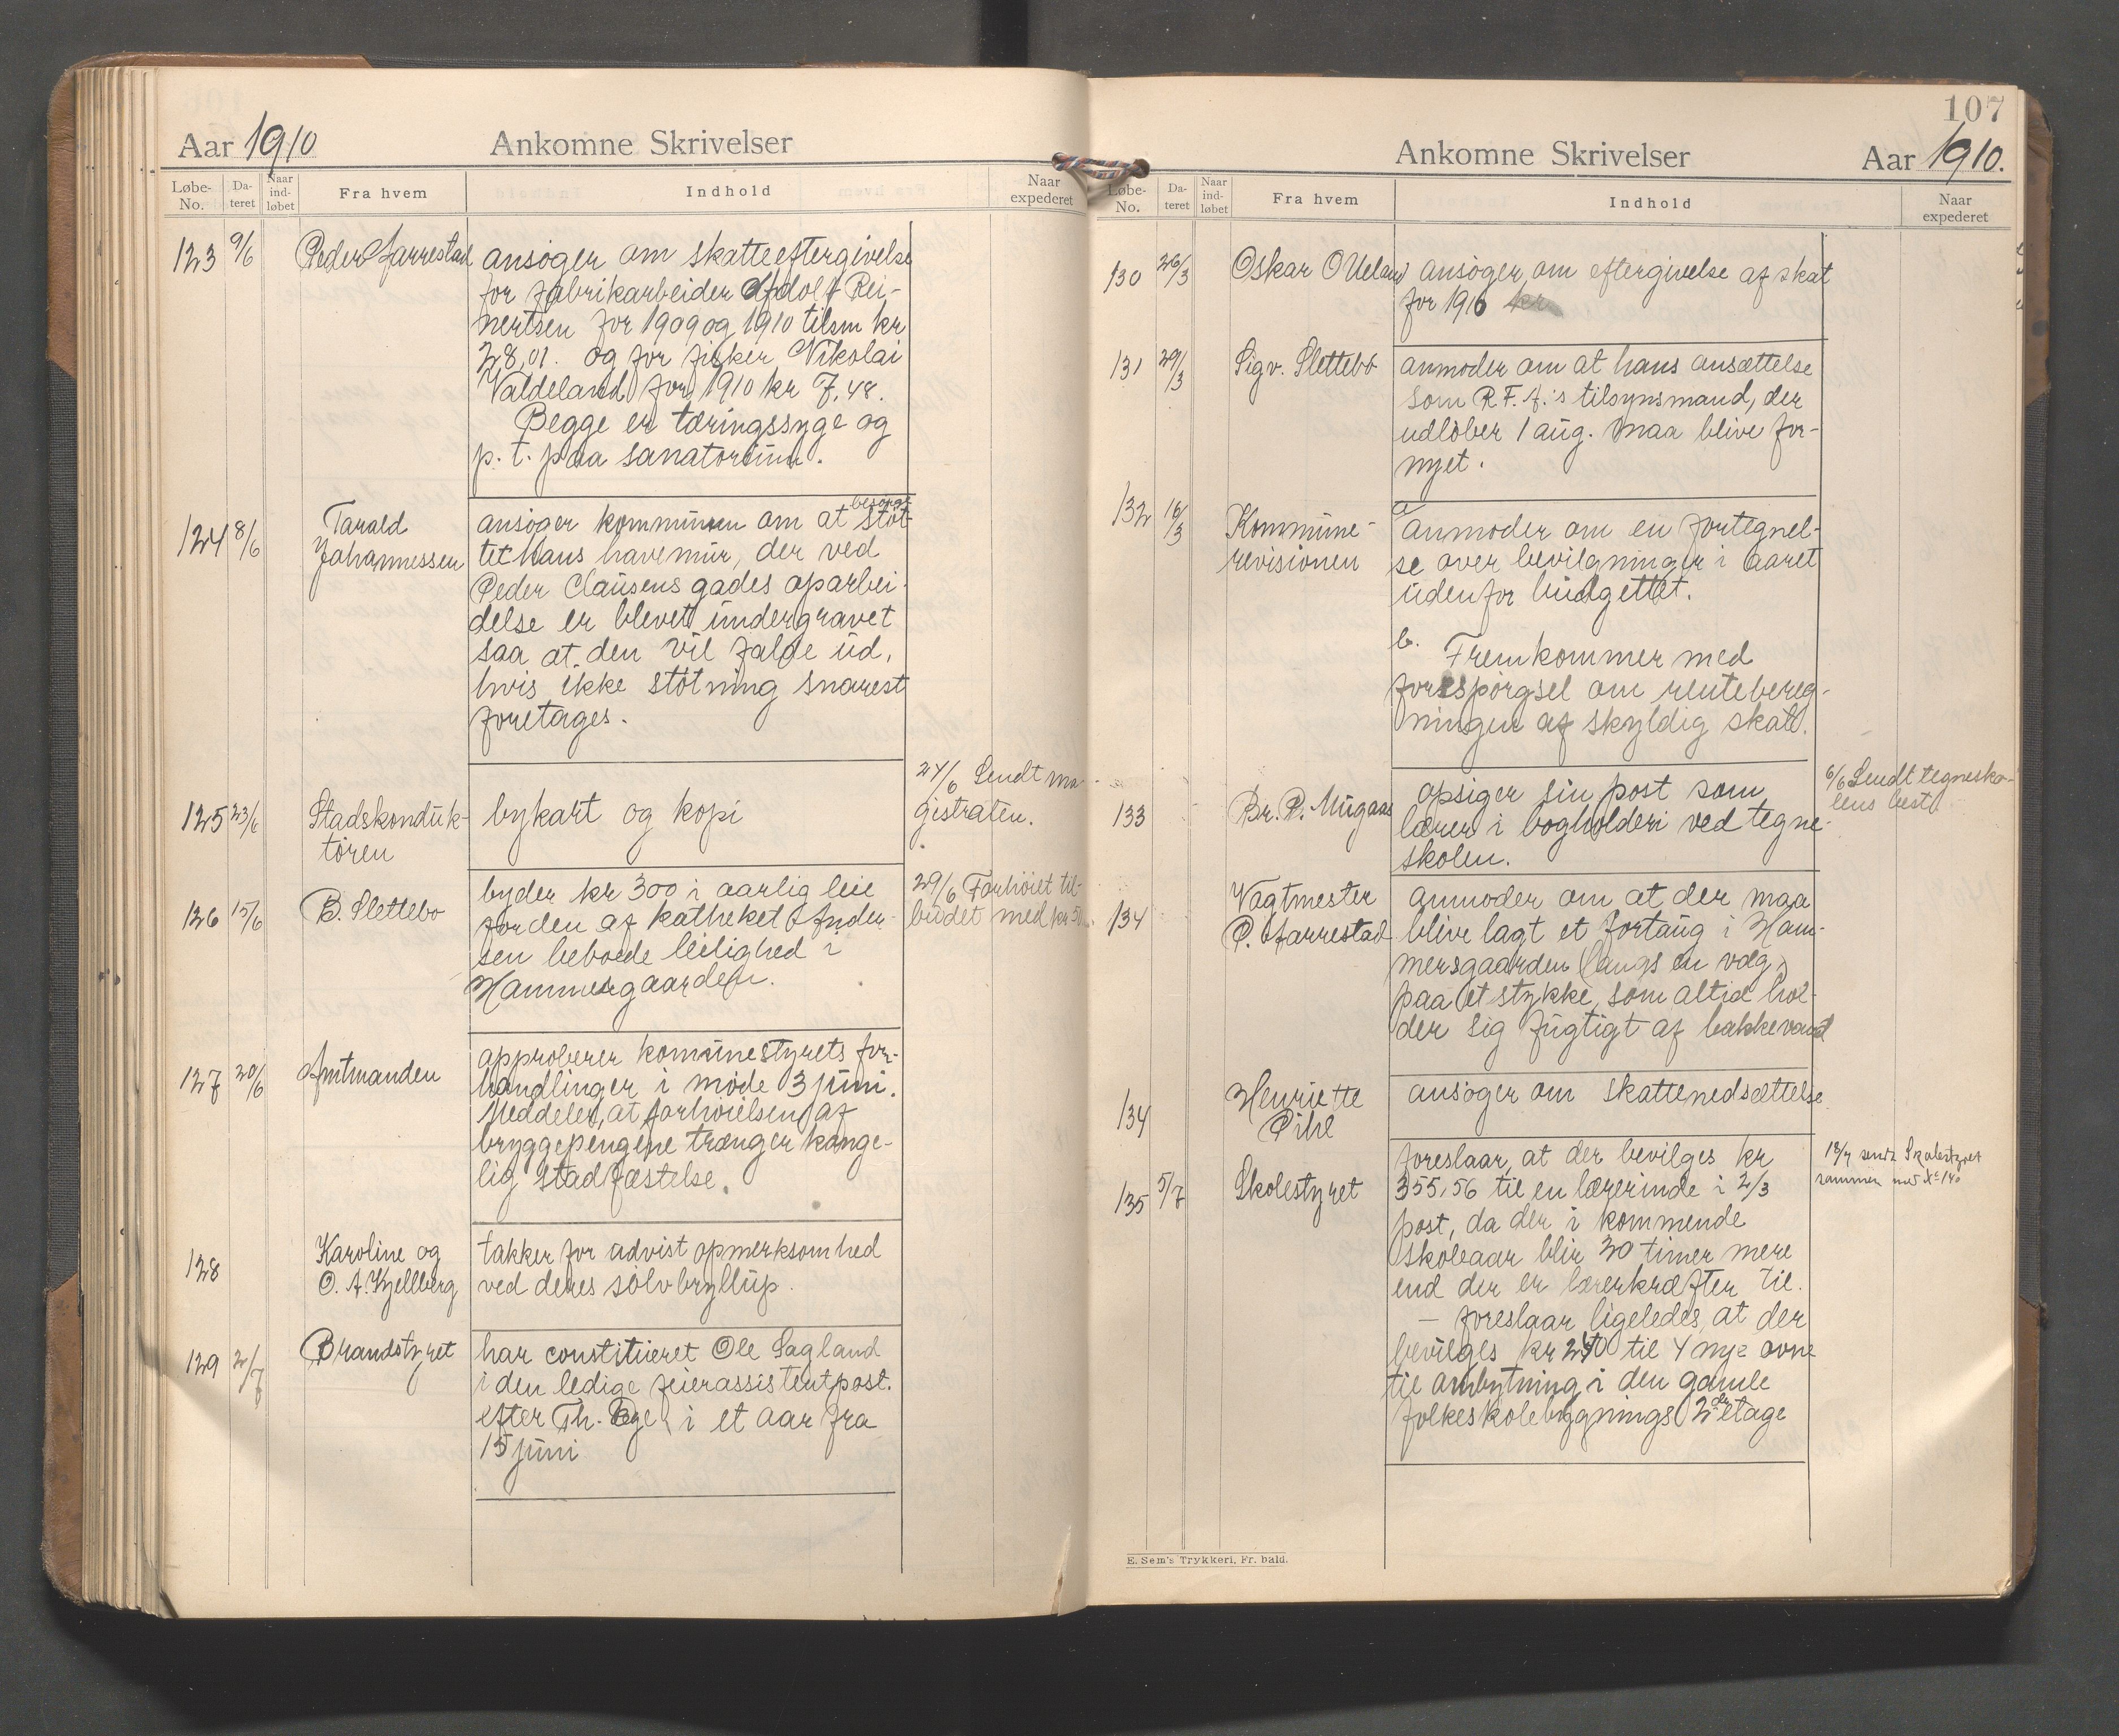 Aar 1910
Ankomne Skrivelser
Løbe-No.
Da-teret
Naar ind-løbet
Fra hvem
Indhold
Naar expederet
123 9/6 Peder Aarrestad
ansøger om skatteeftergivelse
for fabrikarbeider Adolf Rei-
nertsen for 1909 og 1910 tilsm kr
28,01. og for fisker Nikolai
Valdeland for 1910 kr 7,48.
Begge er tæringssyge og
p. t. paa sanatorium.
124 8/6 Tarald
Johannessen
ansøger kommunen om at besørge støt-
tet hans havemur, der ved
Peder Clausens gades oparbei-
delse er blevet undergravet
saa at den vil falde ud,
hvis ikke støtning snarest
foretages.
125 23/6 Stadskonduk-
tøren
bykart og kopi
24/6 Sendt ma-
gistraten.
126 15/6 B. Slettebø
byder kr 300 i aarlig leie
for den af katheket Ander-
sen beboede leilighed i
Hammersgaarden.
29/6 Forhøiet til-
budet med kr 50
127 20/6 Amtmanden
approberer komunestyrets for-
handlinger i møde 3 juni.
Meddeler, at forhøielsen af
bryggepengene trænger konge-
lig stadfæstelse.
128 Karoline og
O. A. Kjellberg
takker for udvist opmerksomhed
ved deres sølvbryllup.
129 2/7 Brandstyret
har constitueret Ole Sagland
i den ledige feierassistentpost.
efter Th. Bye i et aar fra
15 juni
107
Ankomne Skrivelser
Aar 1910.
Løbe-No.
Da-teret
Naar ind-løbet
Fra hvem
Indhold
Naar expederet
130 26/3 Oskar O Ueland
ansøger om eftergivelse af skat
for 1910 kr
131 29/3 Sigv. Slettebø
anmoder om at hans ansættelse
som R F. A.'s tilsynsmand, der
udløber 1 aug. maa blive for-
nyet.
132 16/3 Kommune-
revisionen
a
anmoder om en fortegnel-
se over bevilgninger i aaret
udenfor budgettet.
b. Fremkommer med
forespørgsel om rentebereg-
ningen af skyldig skat.
133 Br. P. Mugaas
opsiger sin post som
lærer i bogholderi ved tegne-
skolen.
6/6 Sendt tegnesko-
lens best.
134 Vagtmester
P. Aarrestad
anmoder om at der maa
blive lagt et fortaug i Ham-
mersgaarden langs en væg,
paa et stykke, som altid hol-
der sig fugtigt af bakkevand
134 Henriette
Pihl
ansøger om skattenedsættelse
135 5/7 Skolestyret
foreslaar, at der bevilges kr
355,56 til en lærerinde i 2/3
post, da der i kommende
skoleaar blir 30 timer mere
end der er lærerkræfter til.
— foreslaar ligeledes, at der
bevilges kr 240 til 4 nye ovne
til ombytning i den gamle
folkeskolebygnings 2den etage
18/7 sendt Skolestyret
sammen med No 140
E. Sem's Trykkeri, Fr. hald.